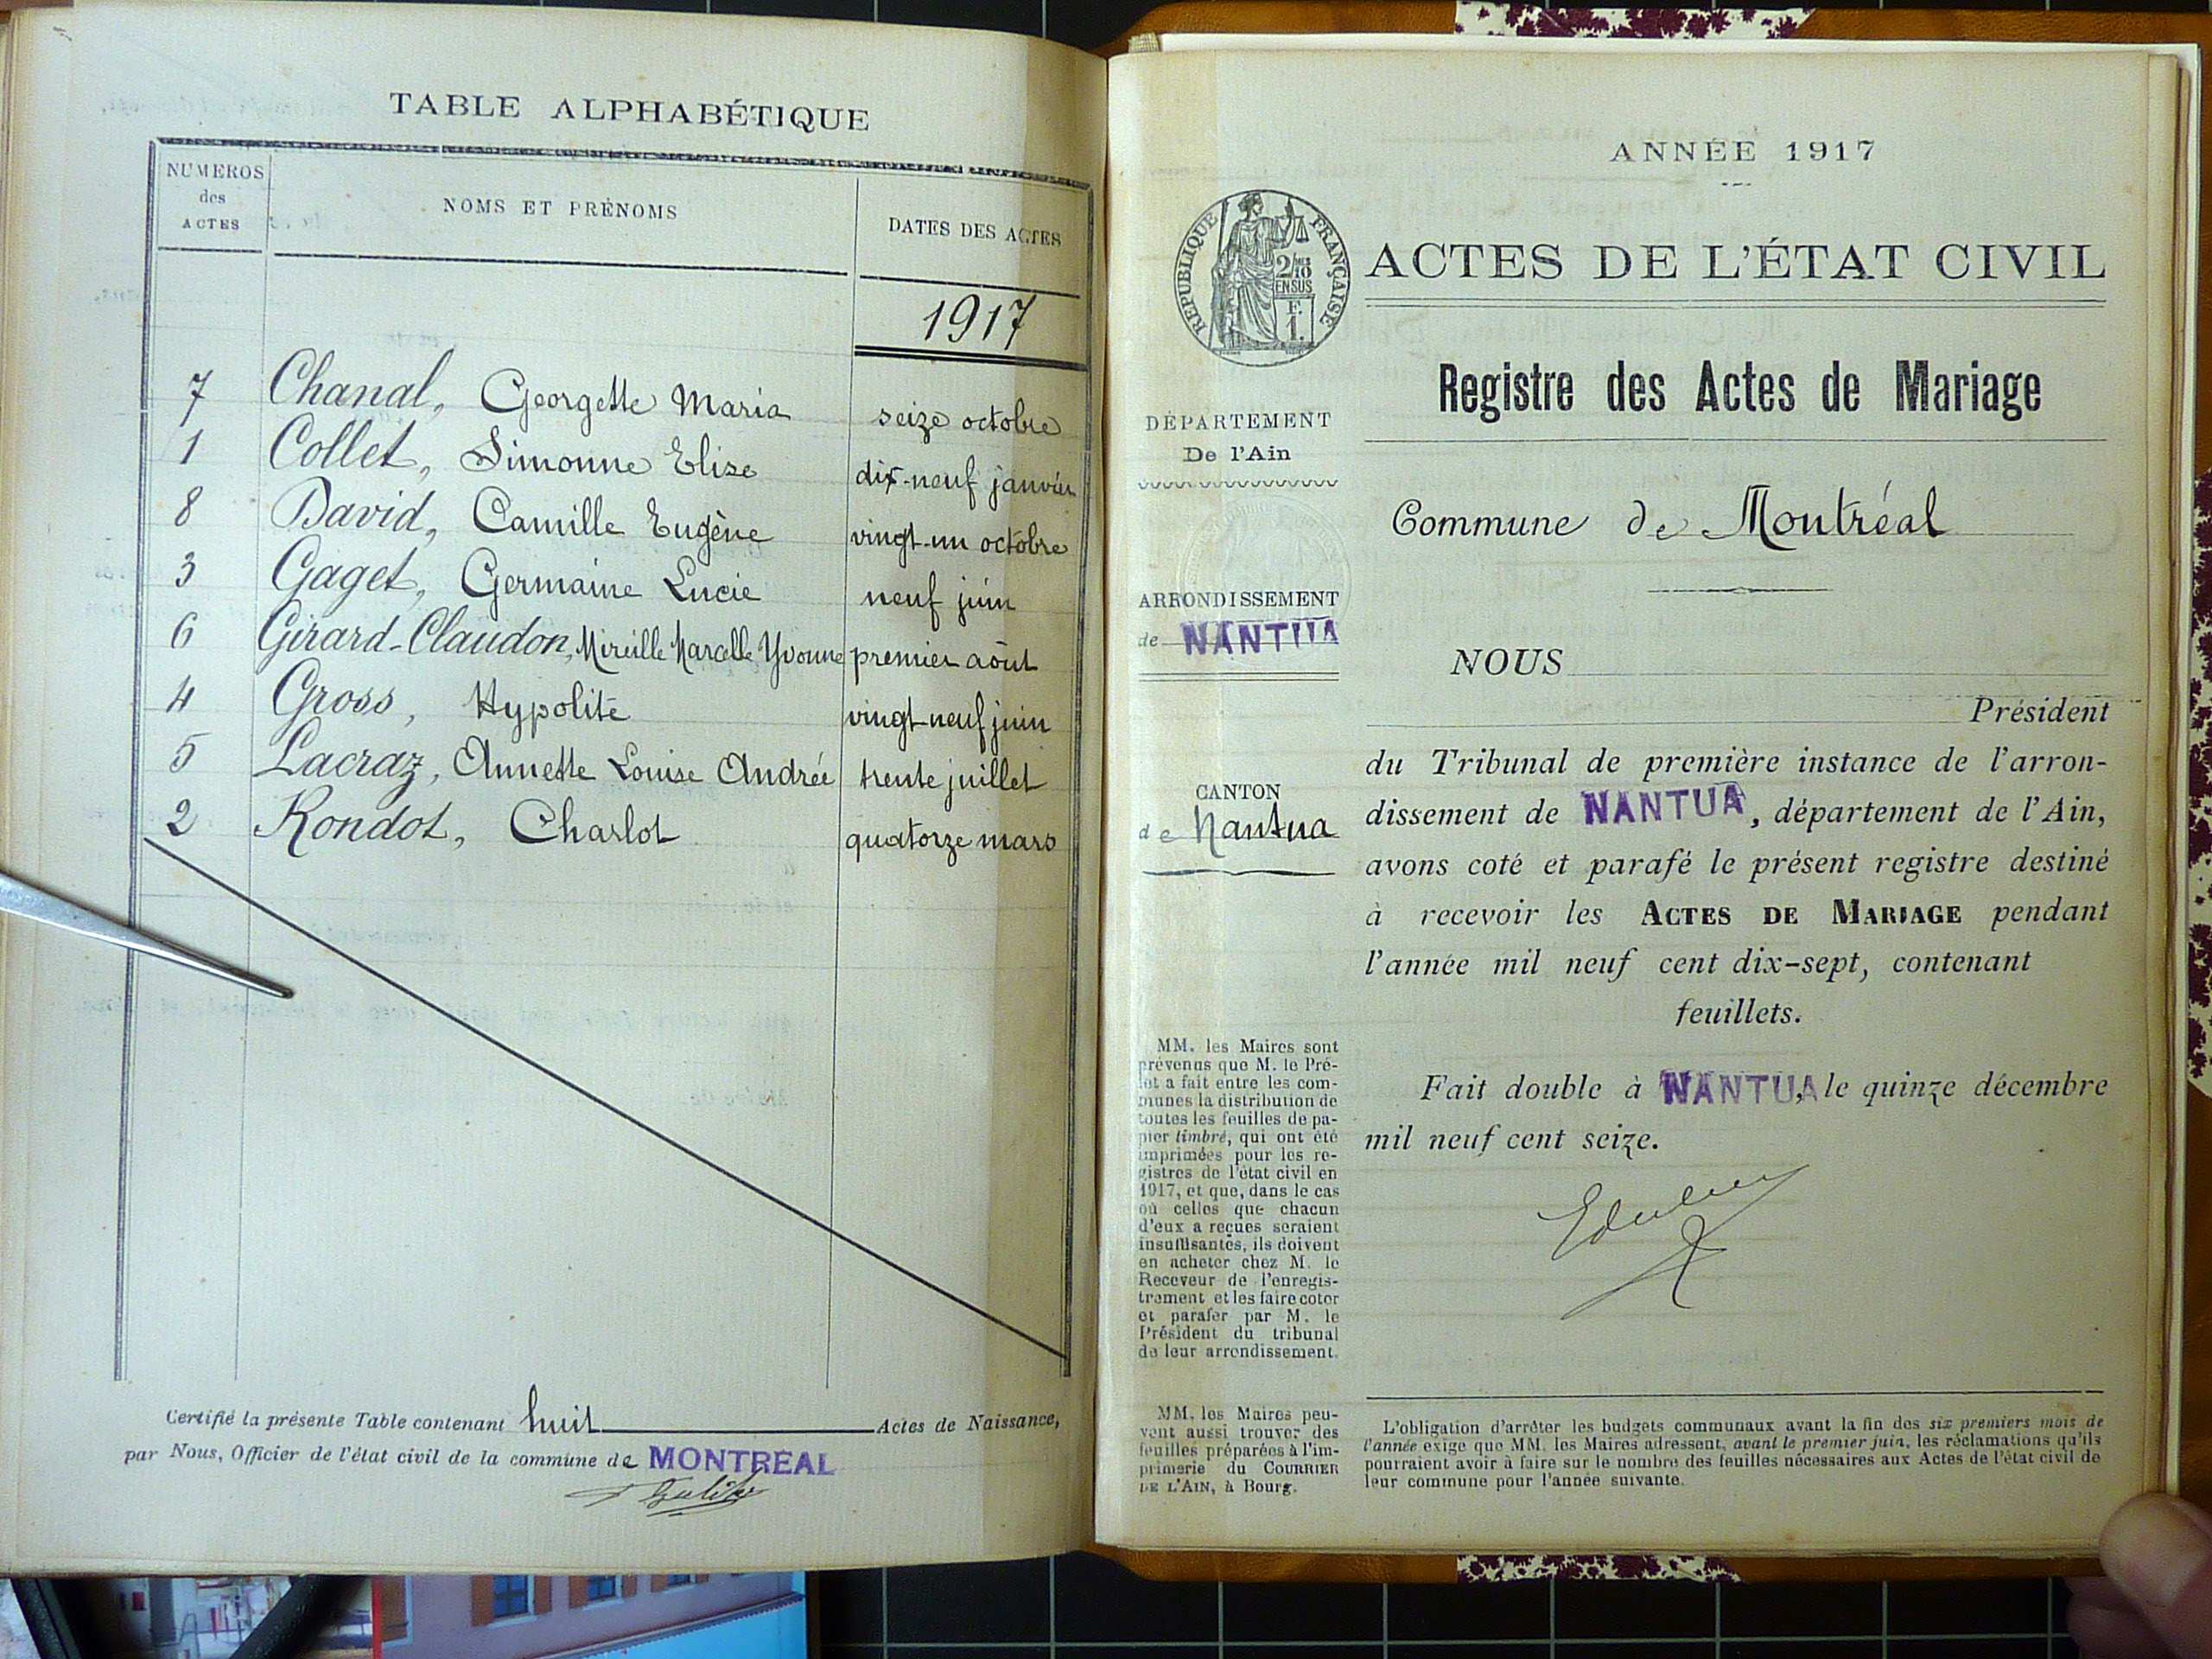 TABLE ALPHABÉTIQUE
NUMEROS
des
ACTES
NOMS ET PRÉNOMS
DATES DES ACTES
1917
7 Chanal, Georgette Maria seize octobre
1 Collet, Simonne Elise dix-neuf janvier
8 David, Camille Eugène vingt-un octobre
3 Gaget, Germaine Lucie neuf juin
6 Girard-Claudon, Mireille Marcelle Yvonne premier août
4 Gross, Hypolite vingt-neuf juin
5 Lacraz, Annette Louise Andrée trente juillet
2 Rondot, Charlot quatorze mars
Certifié la présente Table contenant huit Actes de Naissance,
par Nous, Officier de l'état civil de la commune de MONTRÉAL
ANNÉE 1917
RÉPUBLIQUE FRANÇAISE
2/10
EN SUS
F.
1.
ACTES DE L'ÉTAT CIVIL
Registre des Actes de Mariage
DÉPARTEMENT
De l'Ain
Commune de Montréal
ARRONDISSEMENT
de NANTUA
CANTON
de Nantua
NOUS
Président
du Tribunal de première instance de l'arron-
dissement de NANTUA, département de l'Ain,
avons coté et parafé le présent registre destiné
à recevoir les ACTES DE MARIAGE pendant
l'année mil neuf cent dix-sept, contenant
feuillets.
Fait double à NANTUA, le quinze décembre
mil neuf cent seize.
MM. les Maires sont
prévenus que M. le Pré-
fet a fait entre les com-
munes la distribution de
toutes les feuilles de pa-
pier timbré, qui ont été
imprimées pour les re-
gistres de l'état civil en
1917, et que, dans le cas
où celles que chacun
d'eux a reçues seraient
insuffisantes, ils doivent
en acheter chez M. le
Receveur de l'enregis-
trement et les faire coter
et parafer par M. le
Président du tribunal
de leur arrondissement.
MM. les Maires peu-
vent aussi trouver des
feuilles préparées à l'im-
primerie du COURRIER
DE L'AIN, à Bourg.
L'obligation d'arrêter les budgets communaux avant la fin des six premiers mois de
l'année exige que MM. les Maires adressent, avant le premier juin, les réclamations qu'ils
pourraient avoir à faire sur le nombre des feuilles nécessaires aux Actes de l'état civil de
leur commune pour l'année suivante.